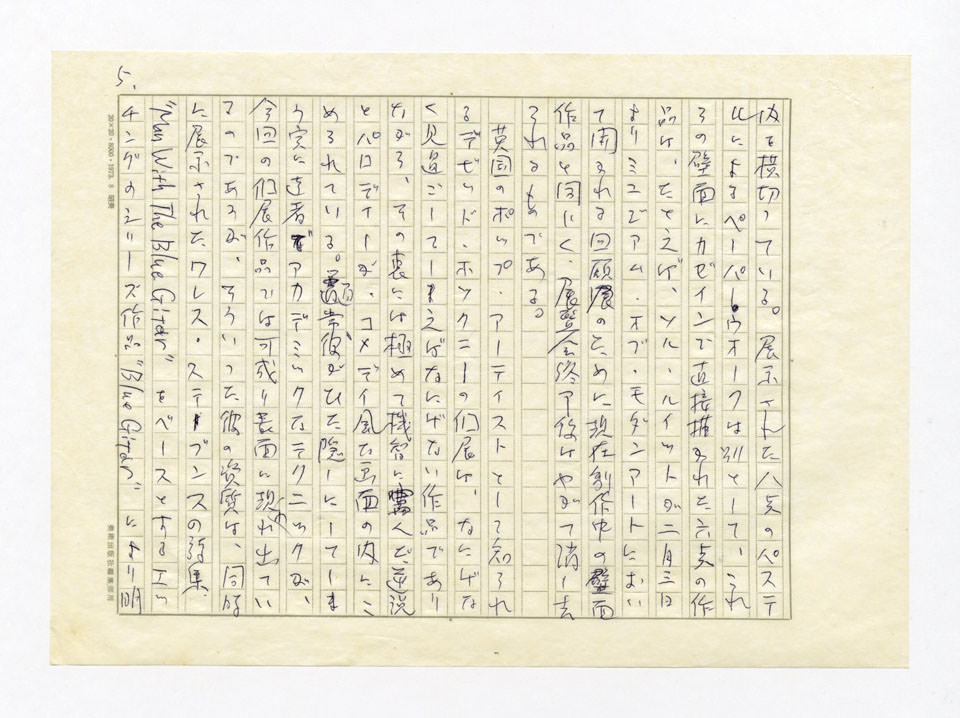 5.
彼を横切っている。展示された八点のパステ
ルによるペーパーウオークは別として、これ
らの壁面にカゼインで直接描かれた六点の作
品は、たとえば、ソル・ルイットが二月三日
よりミユウヂアム・オブ・モダンアートにおい
て開るれる回顧展のために現在制作中の壁面
作品と同じく、展覧会終了後はやがて消し去
られるものである。
英国のポップ・アーティストとして知られ
るデビッド・ホックニーの個展は、なにげな
く見過ごしてしまえばなにげない作品であり
ながら、その裏には極めて機智に富んだ逆説
とパロディーが、コメディ風な画面の内にこ
められている。通常彼がひた隠しにしてしま
う実に達者でアカデミックなテクニックが、
今回の個展作品では可成り表面に現われ出てい
るのであるが、そういった彼の資質は、同時
に展示されたワレス・スティーブンスの詩集、
"Man With The Blue Gitar" をベースとするエッ
チングのシリーズ作品 "Blue Gitar" により明
20×20・8000・1973.8 昭東